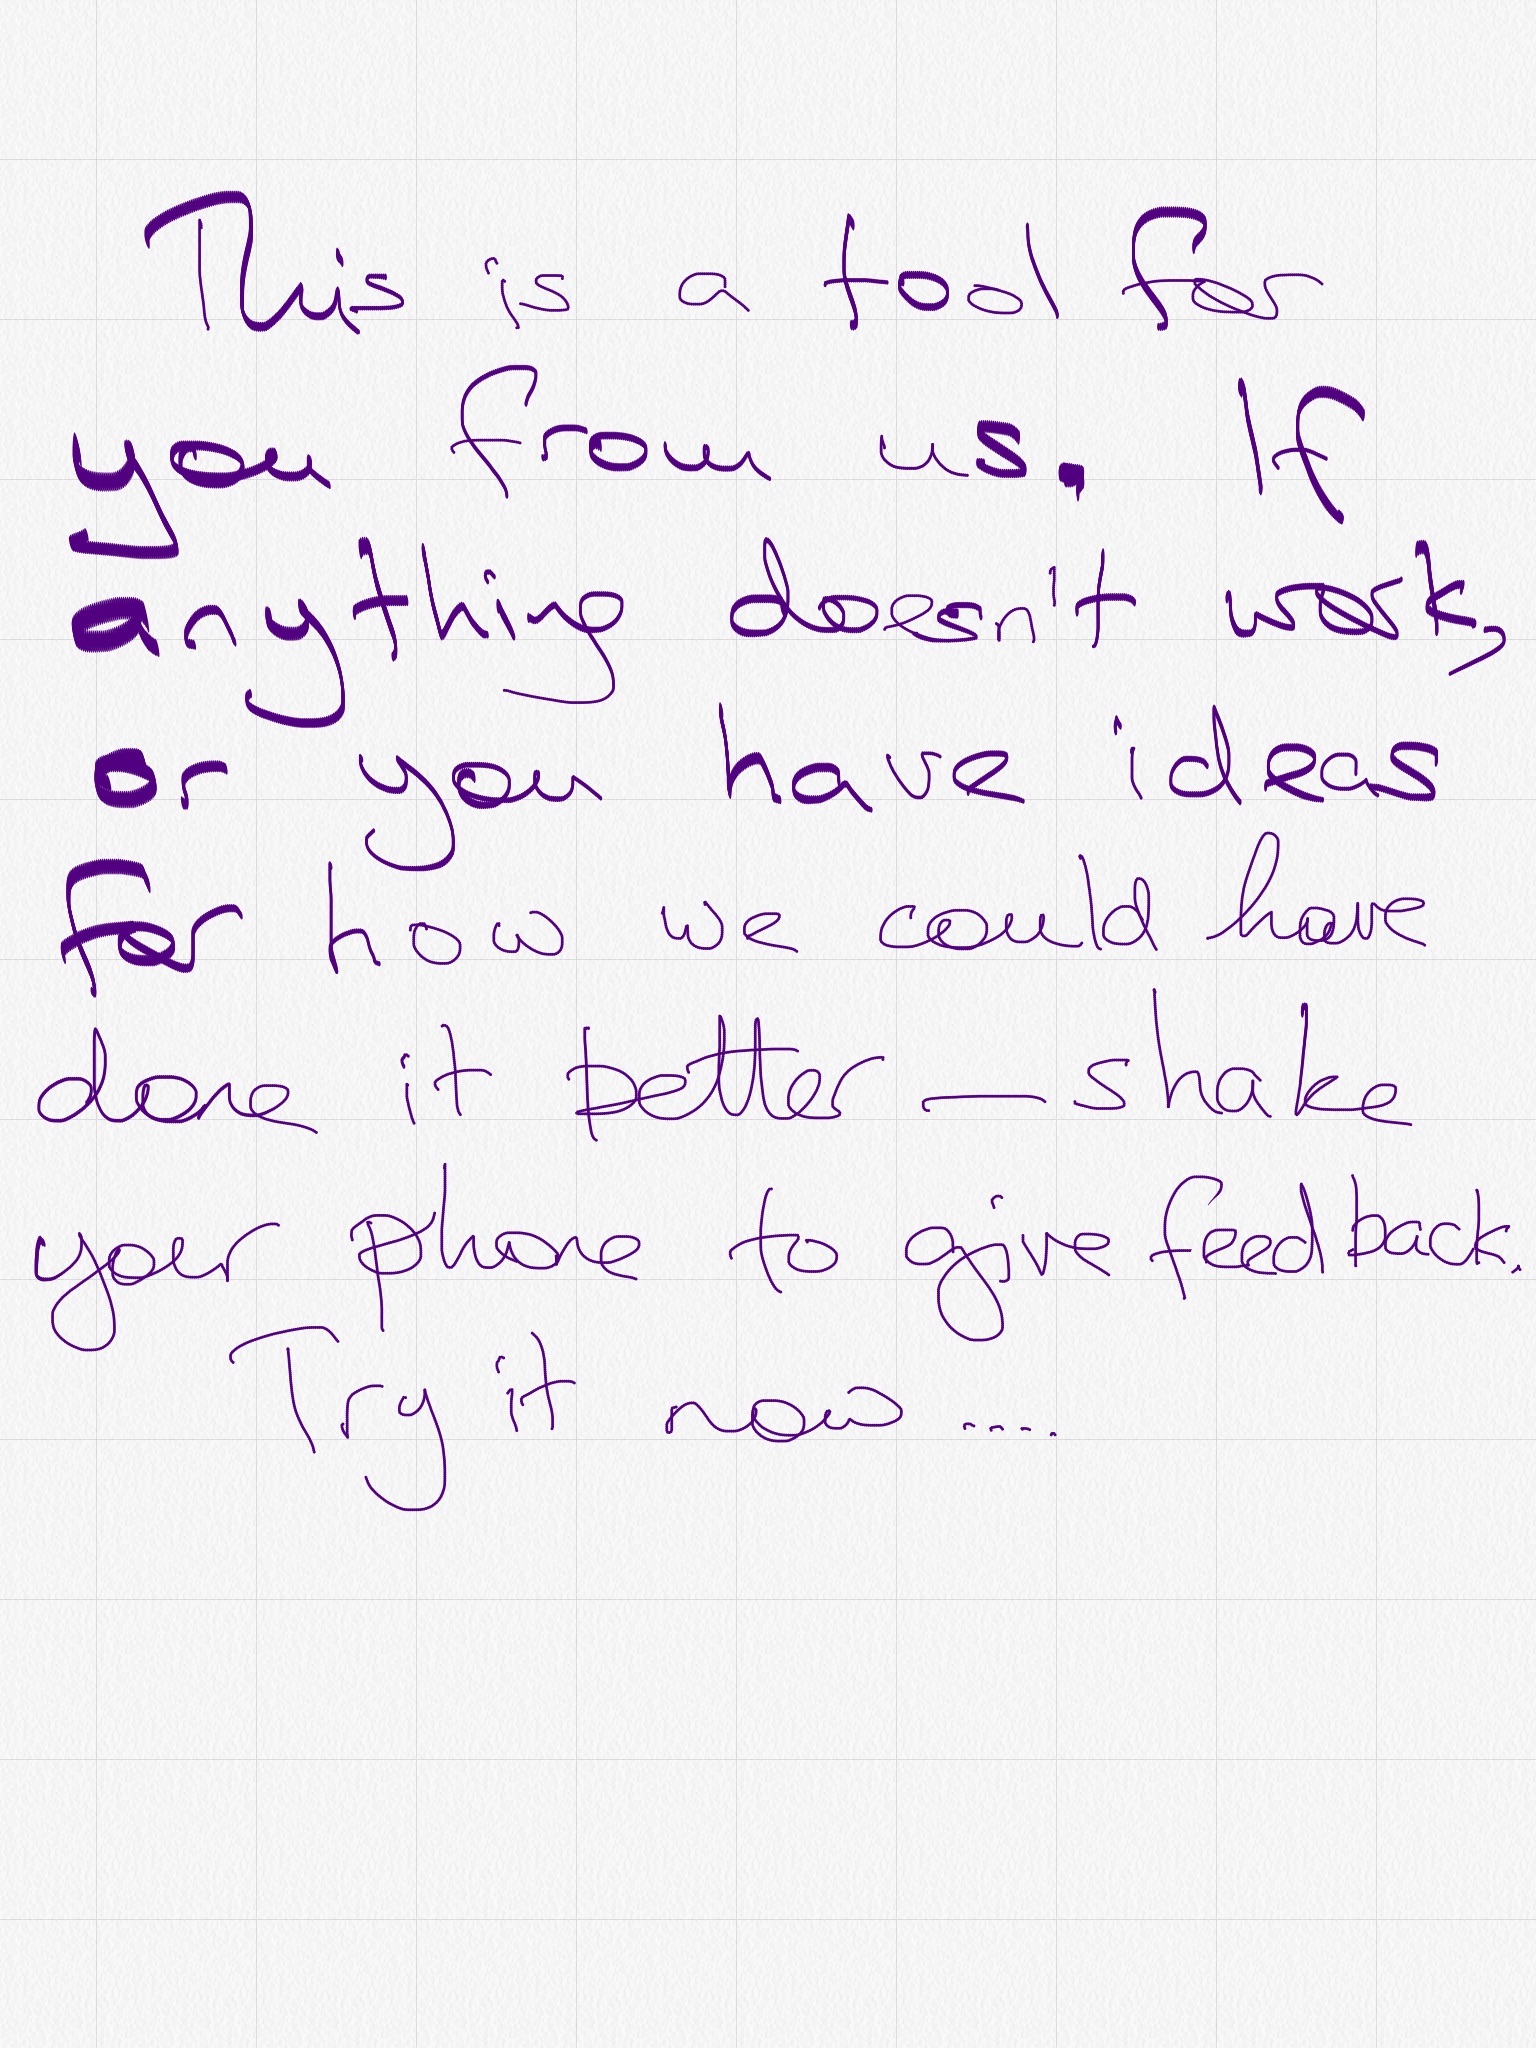 This is a tool for
you from us. If
anything doesn't work,
or you have ideas
for how we could have
done it better - shake
your phone to give feedback.
Try it now ....